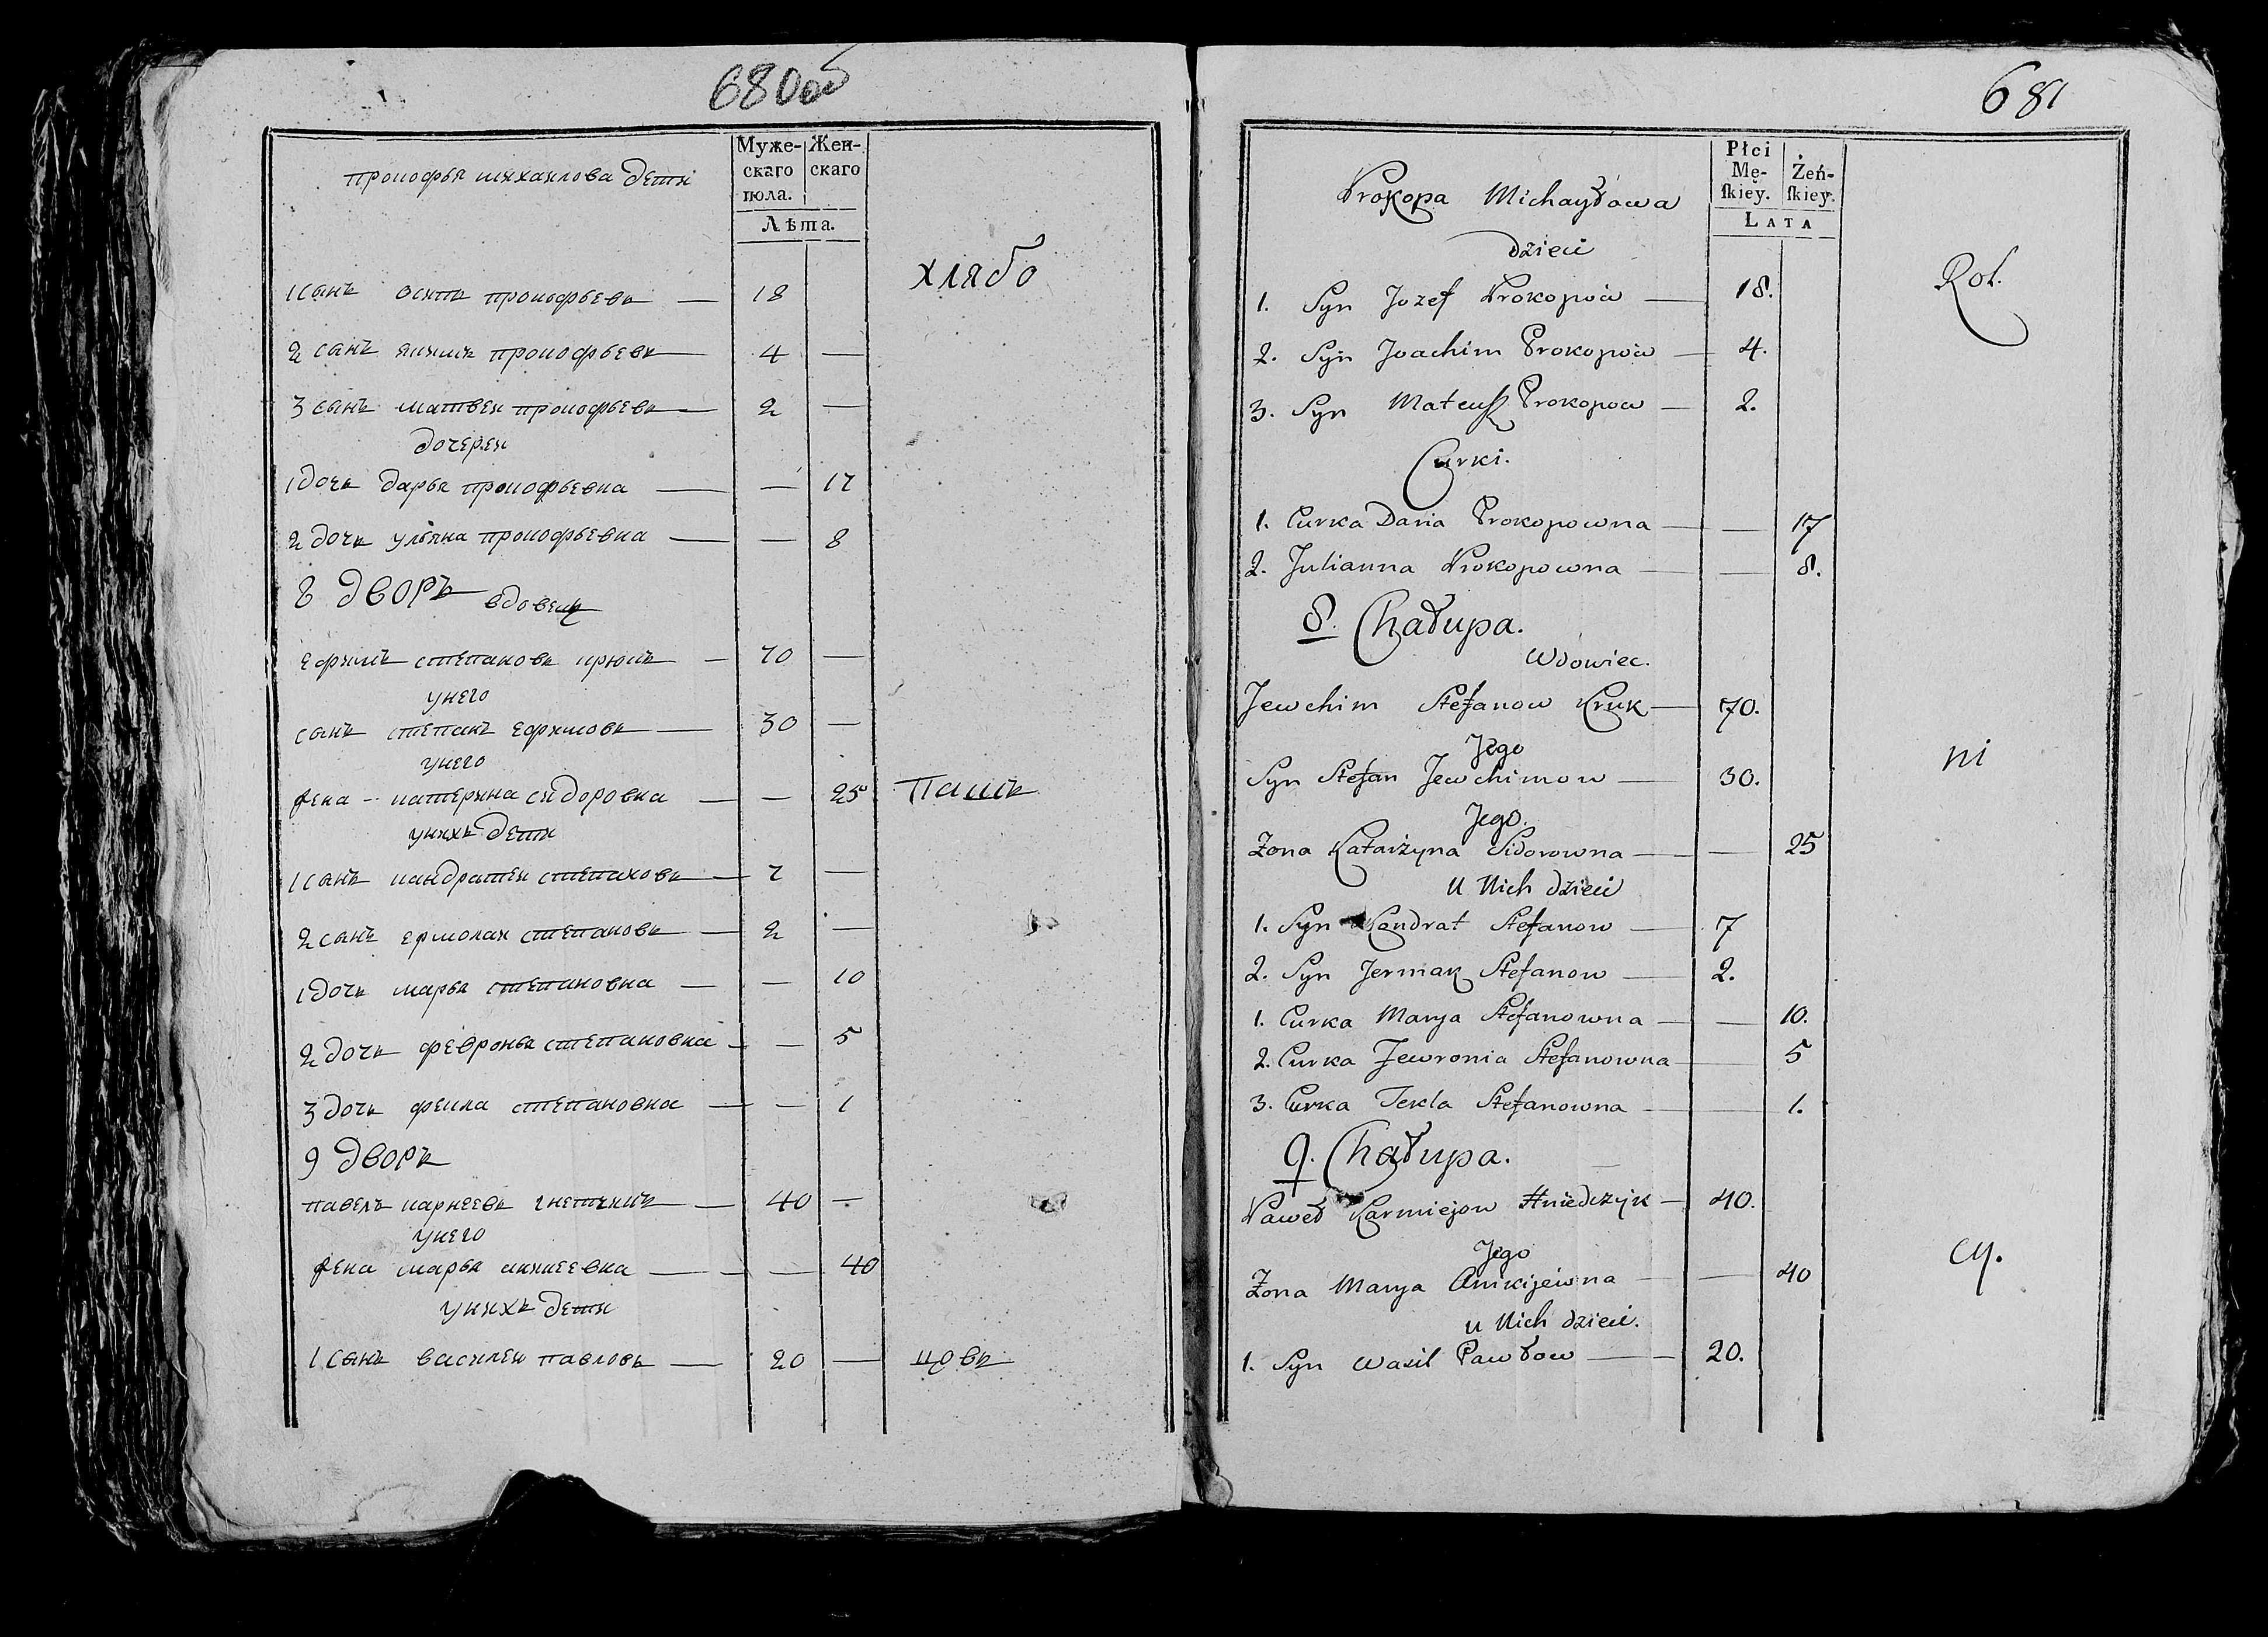 680об
Муже-
скаго
пола.
Жен-
скаго
Лѣта.
прокофья михаилова дети
хлябо
1 сынъ осипъ прокофьевъ — 18
2 сынъ якимъ прокофьевъ — 4 —
3 сынъ матвеи прокофьевъ — 2 —
дочереи
1 дочь дарья прокофьевна — — 17
2 дочь ульяна прокофьевна — — 8
8 дворъ вдовецъ
ефимъ степановъ крюкъ — 70 —
унего
сынъ степанъ ефимовъ — 30 —
унего
жена - катерина сидоровна — — 25 пашъ
унихъ дети
1 сынъ кандратеи степановъ — 7 —
2 сынъ ермолаи степановъ — 2 —
1 дочь марья степановна — — 10
2 дочь февронья степановна — — 5
3 дочь фекла степановна — — 1
9 дворъ
павелъ карнеевъ гнетчикъ — 40 —
унего
жена марья аникеевна — — 40
унихъ дети
1 сынъ василеи павловъ — 20 — цовъ
681
Płci
Mę-
ſkiey.
Żeń-
ſkiey.
LATA
Prokopa Michayłowa
dzieci
Rol.
1. Syn Jozef Prokopow — 18.
2. Syn Joachim Prokopow — 4.
3. Syn Mateusz Prokopow — 2.
Curki.
1. Curka Daria Prokopowna — — 17
2. Julianna Prokopowna — — 8.
8. Chałupa.
Wdowiec.
Jewchim Stefanow Kruk — 70.
Jego
ni
Syn Stefan Jewchimow — 30.
Jego.
Zona Katarżyna Sidorowna — — 25
U Nich dzieci
1. Syn Kondrat Stefanow — 7
2. Syn Jermak Stefanow — 2.
1. Curka Marya Stefanowna — — 10.
2. Curka Jewronia Stefanowna — 5
3. Curka Tekla Stefanowna — — 1.
9. Chałupa.
Paweł Karmiejow Hniedczyk — 40.
Jego
cy.
Zona Marya Anikijewna — — 40
u Nich dzieci.
1. Syn Wasil Pawłow — 20.